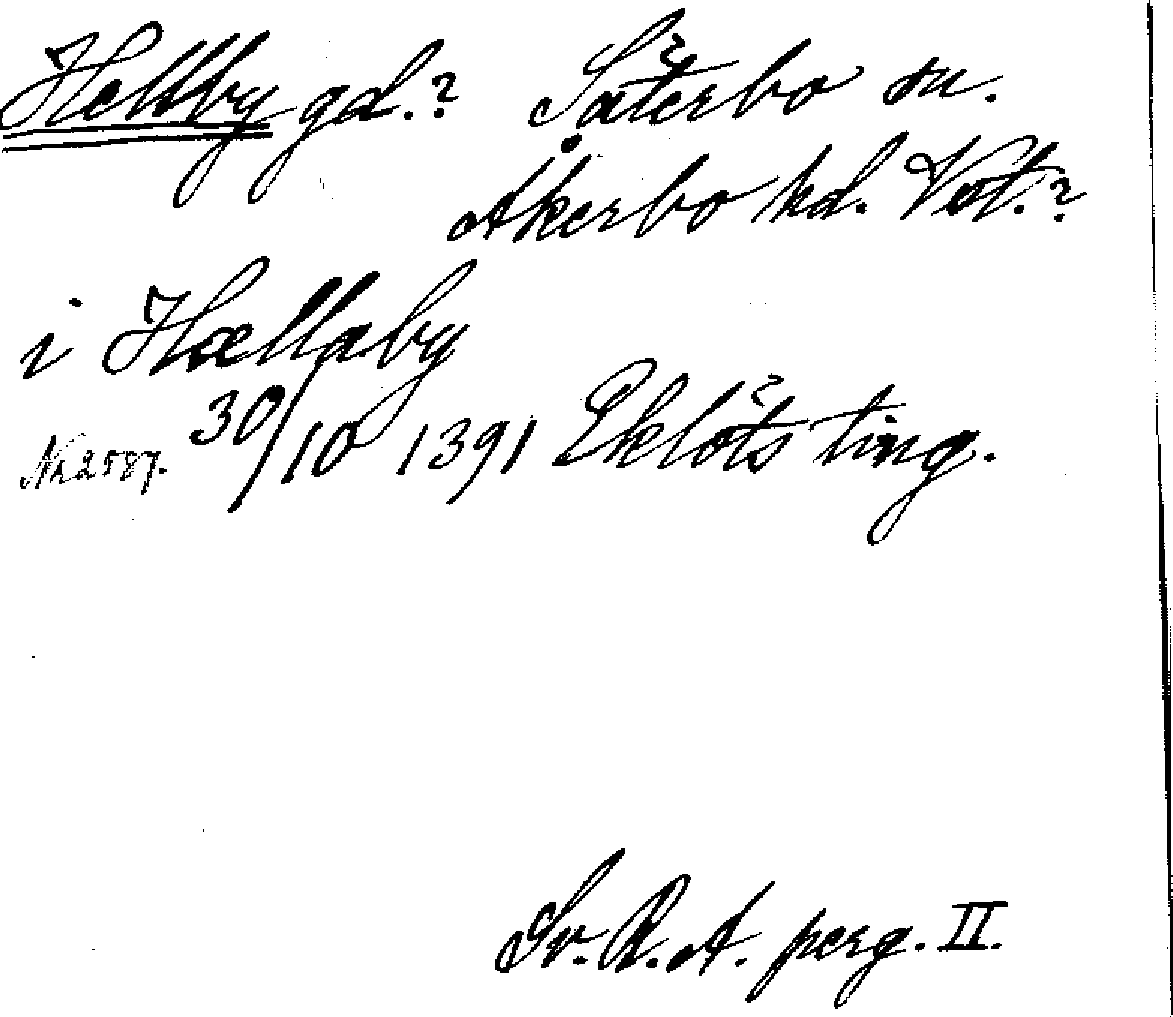 Hellby gd.? Säterbo sn.
Åkerbo hd. Vstm.?
i Hællaby
Nr 2587. 30/10 1391 Eklöts ting.
Sv. R. A. perg. II.